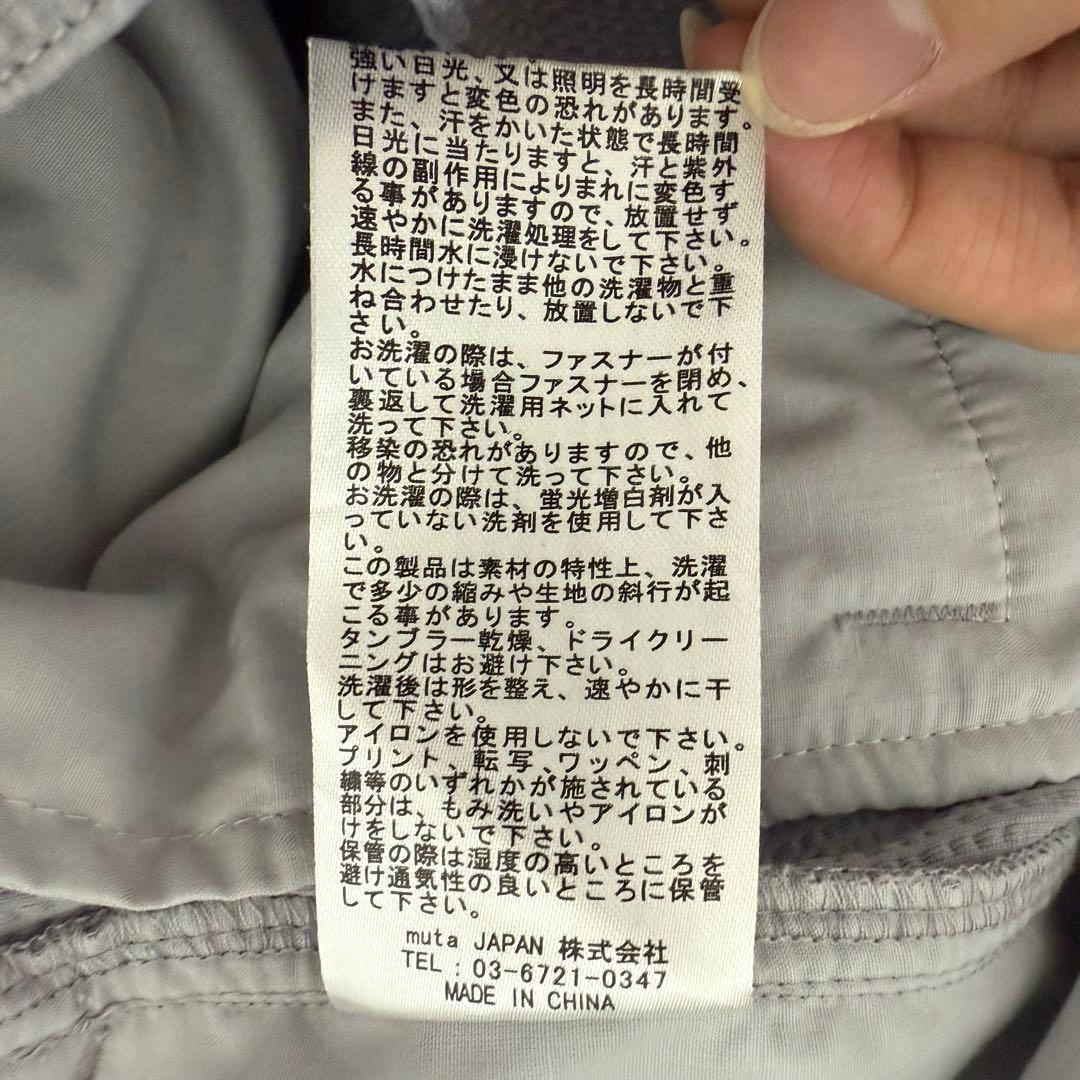 強い日光、又は照明を長時間受
けますと変色の恐れがあります。
また、汗をかいた状態で長時間
日光に当たりますと、汗と紫外
線の副作用によりまれに変色す
る事がありますので、放置せず
速やかに洗濯処理をして下さい。
長時間水に浸けないで下さい。
水につけたまま他の洗濯物と重
ね合わせたり、放置しないで下
さい。
お洗濯の際は、ファスナーが付
いている場合ファスナーを閉め、
裏返して洗濯用ネットに入れて
洗って下さい。
移染の恐れがありますので、他
の物と分けて洗って下さい。
お洗濯の際は、蛍光増白剤が入
っていない洗剤を使用して下さ
い。
この製品は素材の特性上、洗濯
で多少の縮みや生地の斜行が起
こる事があります。
タンブラー乾燥、ドライクリー
ニングはお避け下さい。
洗濯後は形を整え、速やかに干
して下さい。
アイロンを使用しないで下さい。
プリント、転写、ワッペン、刺
繍等のいずれかが施されている
部分は、もみ洗いやアイロンが
けをしないで下さい。
保管の際は湿度の高いところを
避け通気性の良いところに保管
して下さい。
muta JAPAN 株式会社
TEL : 03-6721-0347
MADE IN CHINA